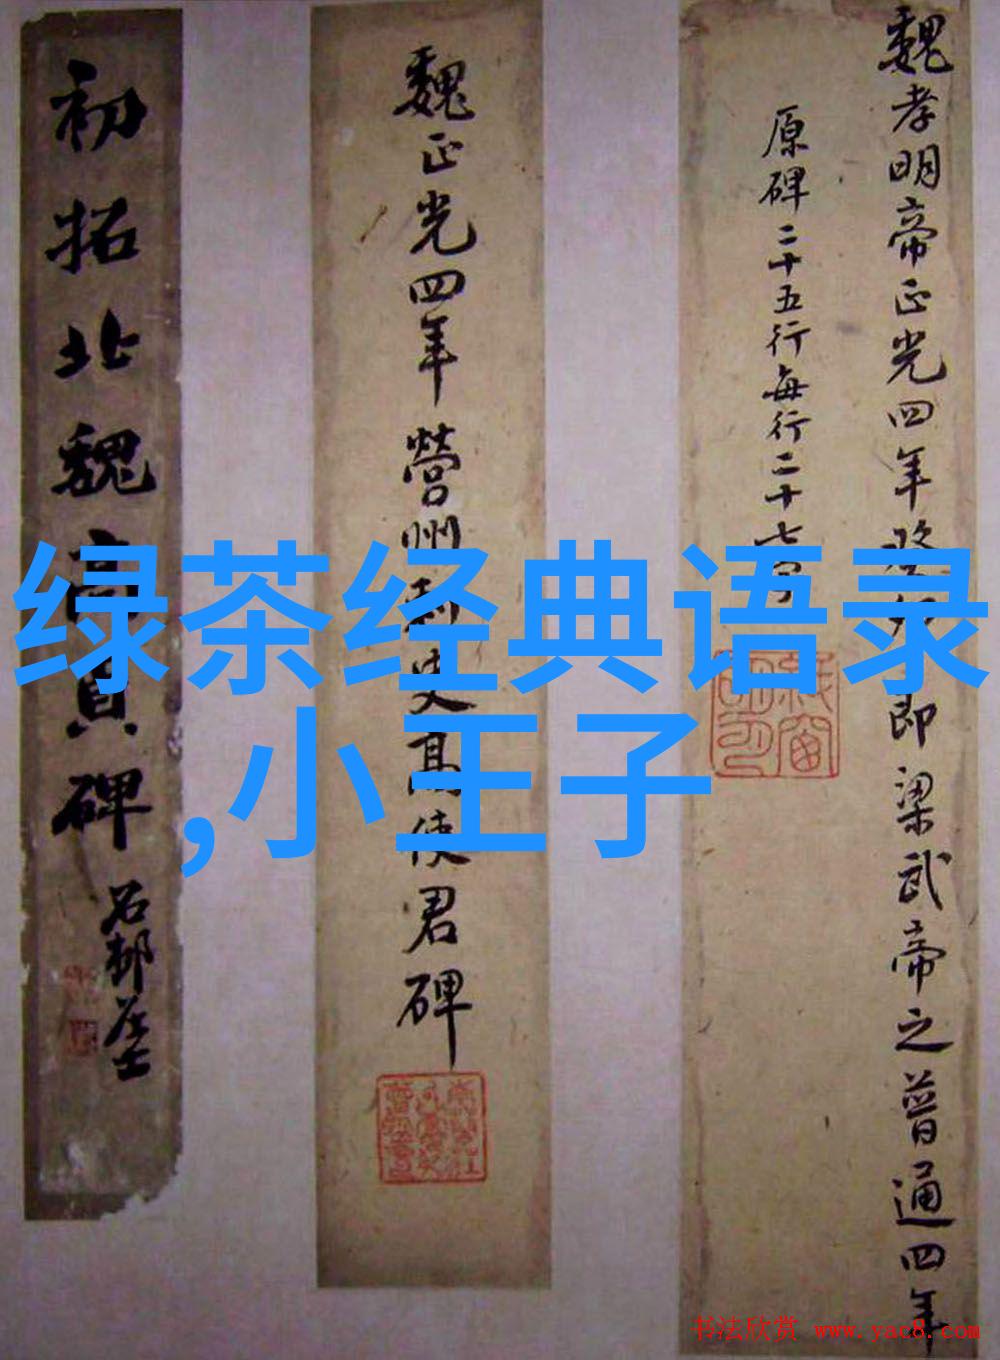 魏孝明帝正光四年癸卯即梁武帝之普通四年
原碑二十五行每行二十七字
魏正光四年營州刺史高使君碑
初拓北魏高貞碑
石邨居士
绿茶经典语录
,小王子
书法欣赏 www.yac8.com